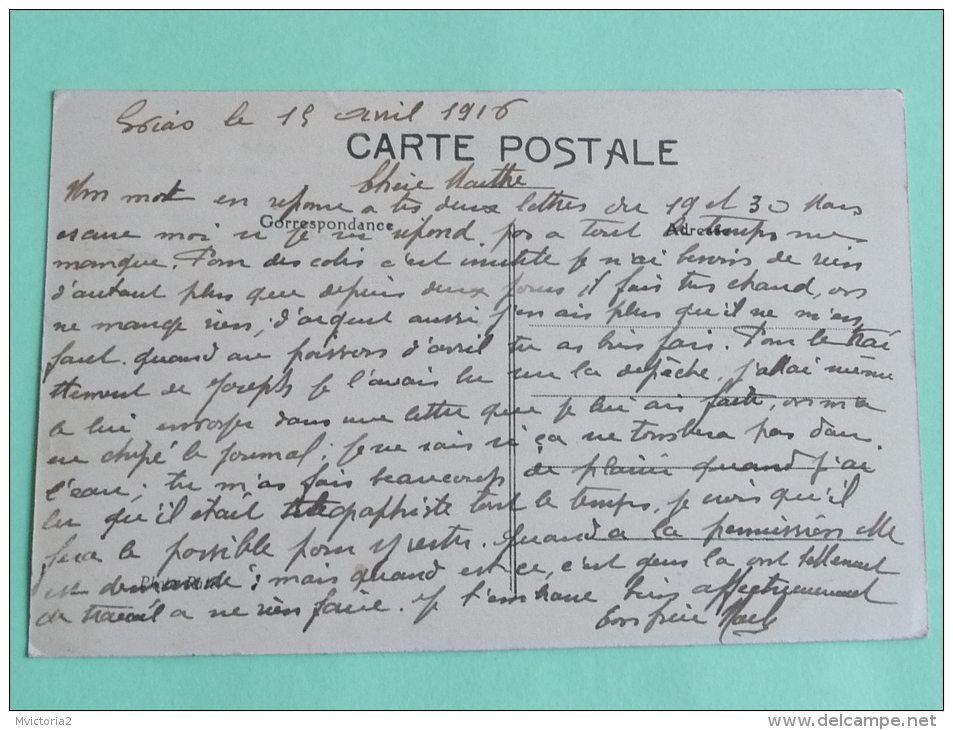 le 15 avril 1916
CARTE POSTALE
Chère Marthe
Un mot en reponse a tes deux lettres du 19 et 30 Mars
Correspondance
Adresse
excuse moi si je ne répond pas a tout le temps me
manque. Pour des colis c'est inutile je n'ai besoin de rien
d'autant plus que depuis deux jours il fait tres chaud, on
ne mange rien; d'argent aussi j'en ais plus qu'il ne m'en
faut. quand au poisson d'avril tu as bien fais. Pour le trai
ttement de Joseph je l'avais lu sur la depêche, j'allai même
a lui envoyer dans une lettre que je lui ais faite, on m'a
chipé le journal; je ne sais si ça ne tombera pas dans
l'eau; tu m'as fais beaucoup de plaisir quand j'ai
lu qu'il était telegraphiste tout le temps, je crois qu'il
fera le possible pour y rester. Quand a la permission elle
est demandé; mais quand est ce, c'est gens la ont tellement
de travail a ne rien faire. Je t'embrasse bien affectueusement
Ton frère
Mvictoria2
www.delcampe.net